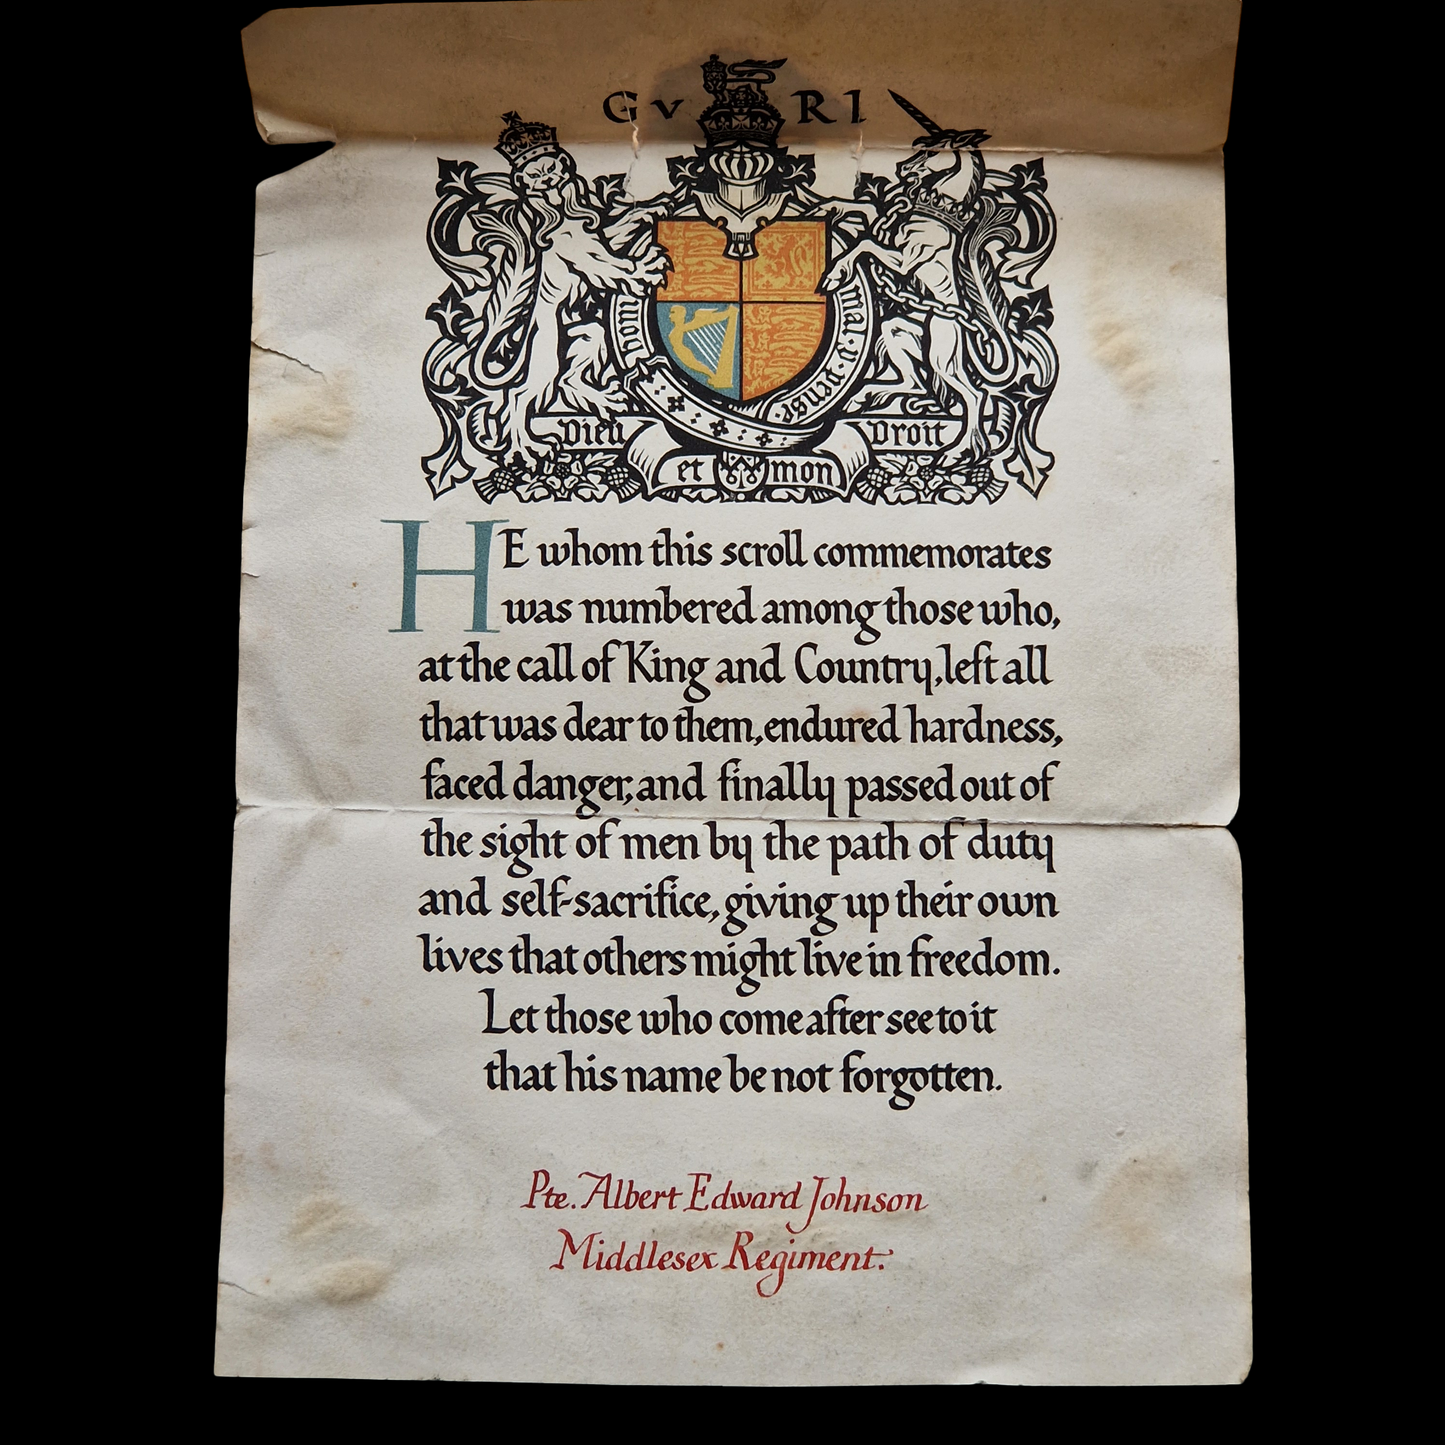 GV RI
Honi soit qui mal y pense
Dieu et mon Droit
HE whom this scroll commemorates
was numbered among those who,
at the call of King and Country, left all
that was dear to them, endured hardness,
faced danger, and finally passed out of
the sight of men by the path of duty
and self-sacrifice, giving up their own
lives that others might live in freedom.
Let those who come after see to it
that his name be not forgotten.
Pte. Albert Edward Johnson
Middlesex Regiment.